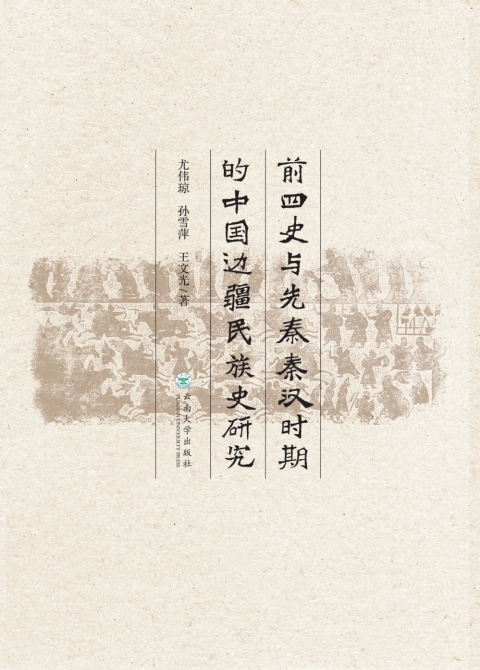 前四史与先秦秦汉时期
的中国边疆民族史研究
尤伟琼 孙雪萍 王文光/著
云南大学出版社
YUNNAN UNIVERSITY PRESS